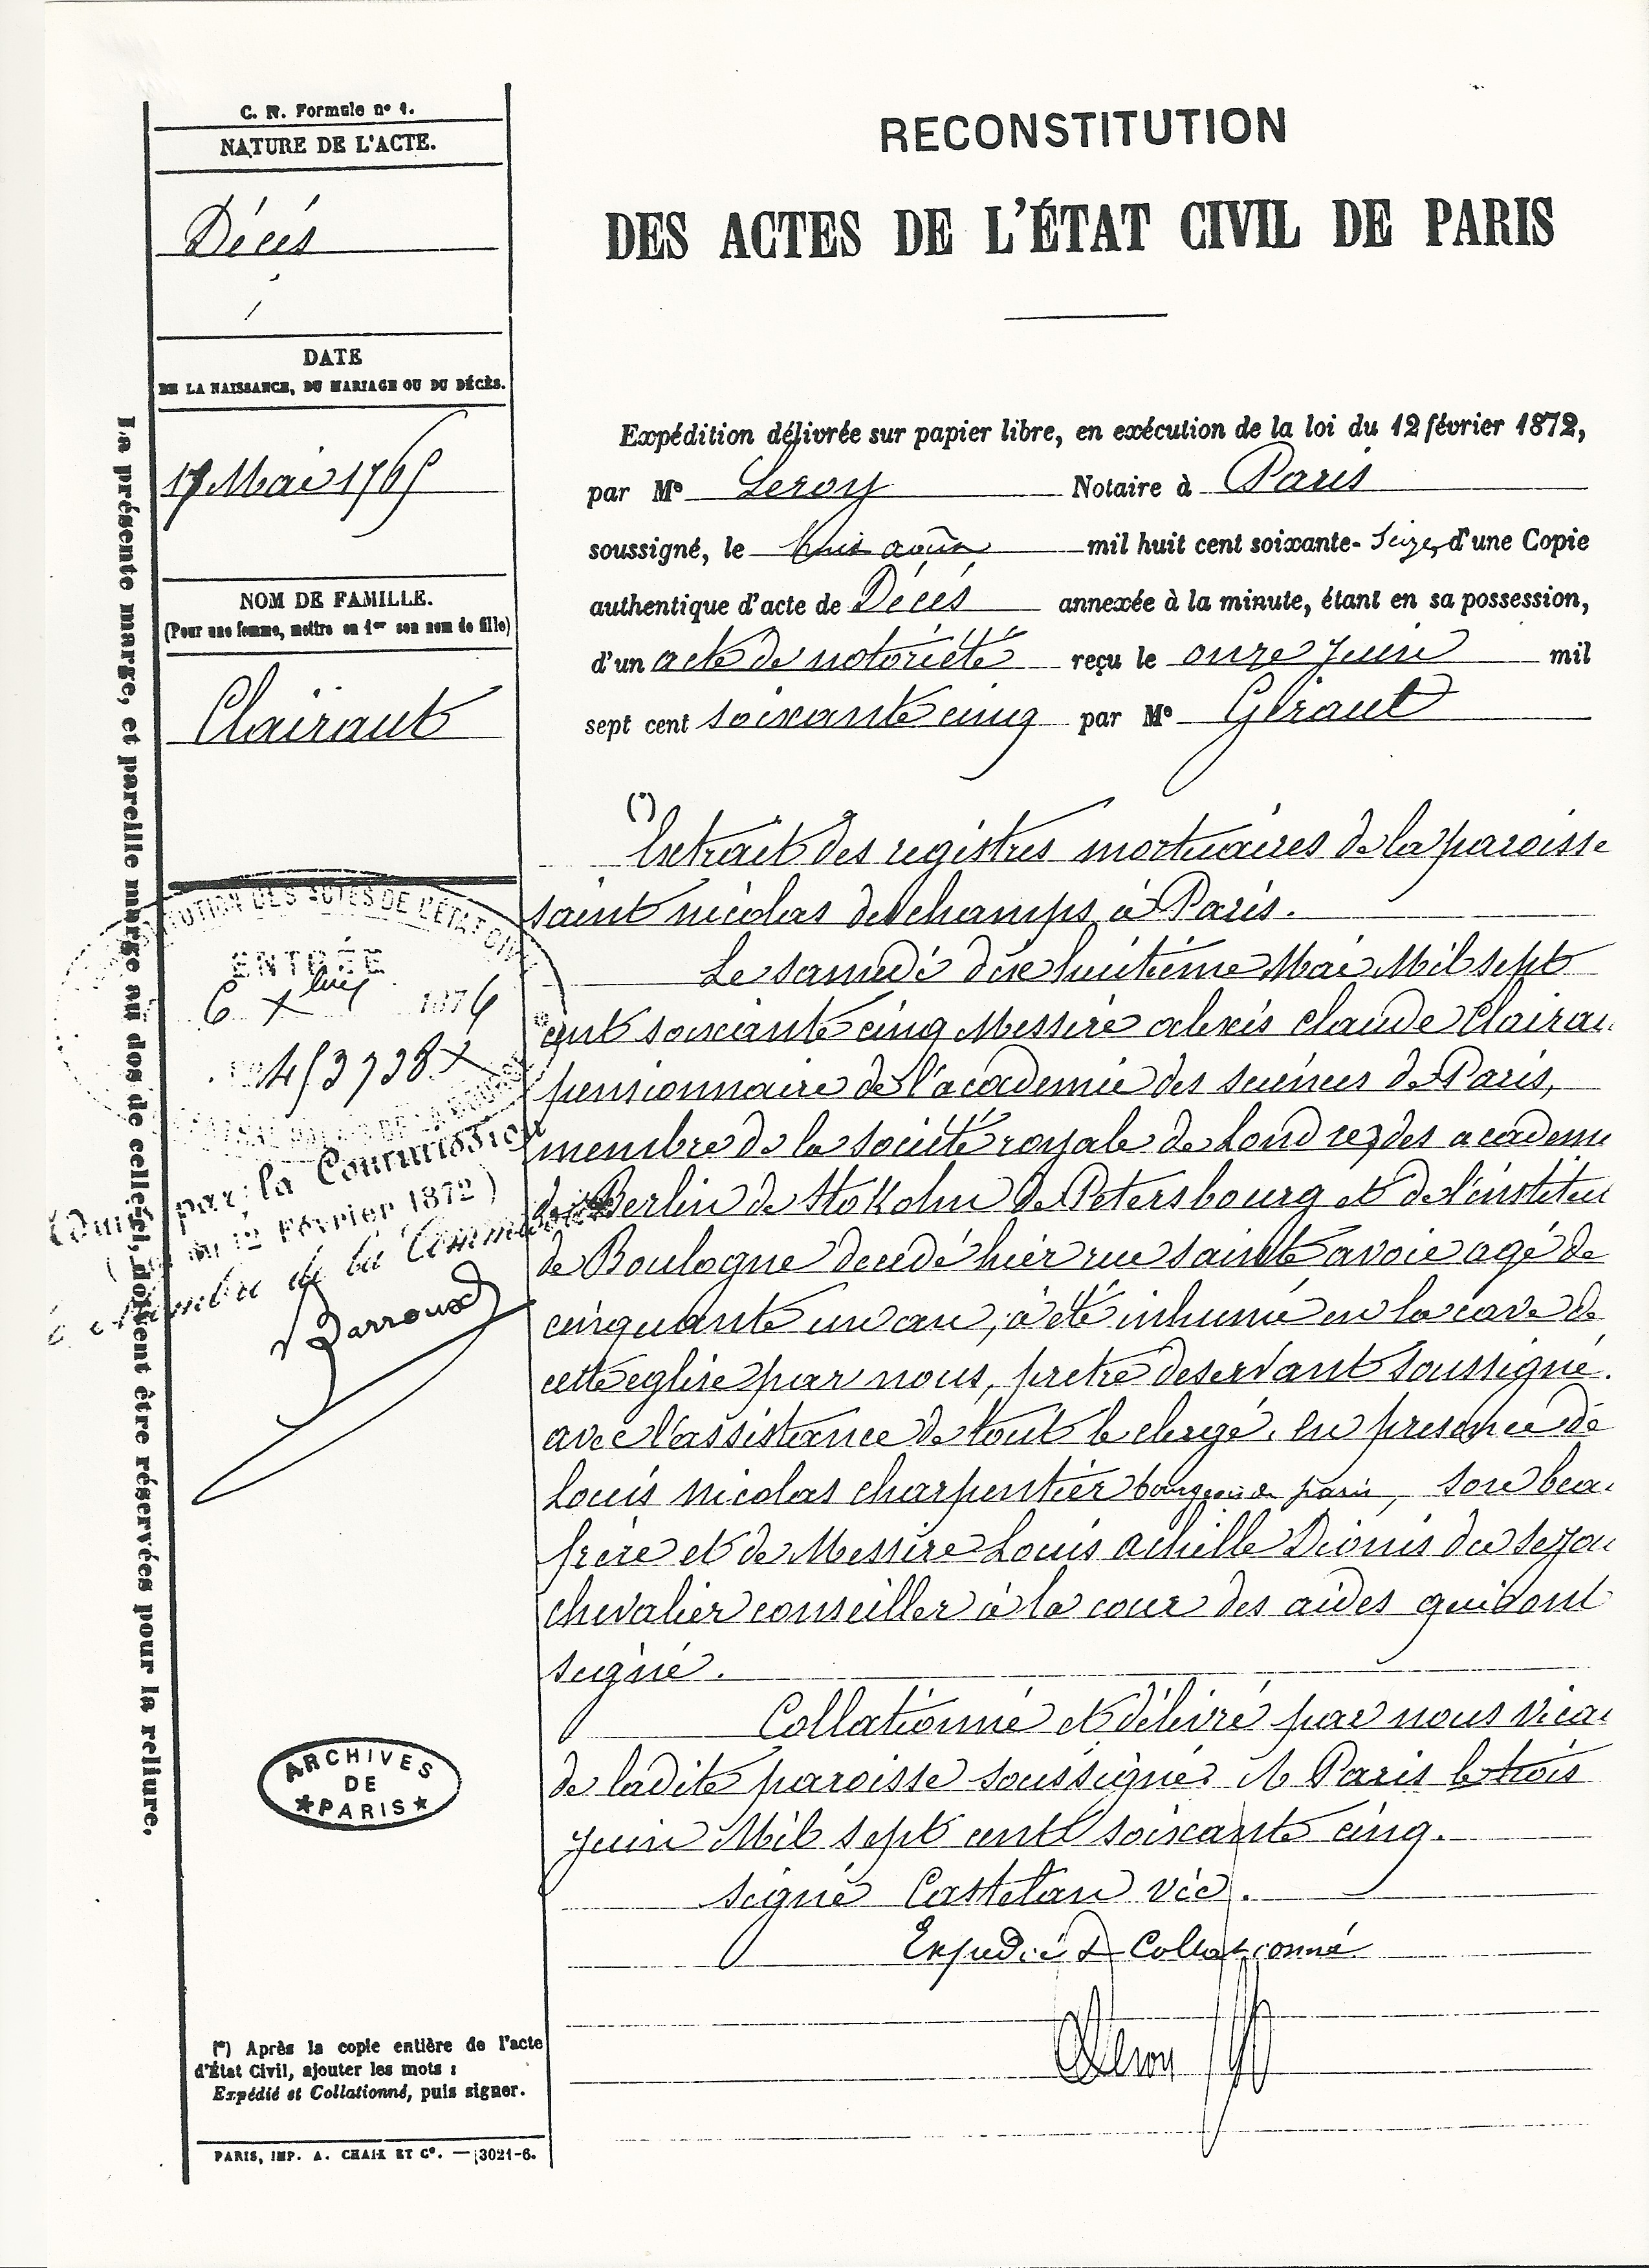 C. N. Formule nº 1.
NATURE DE L'ACTE.
Décés
DATE
DE LA NAISSANCE, DU MARIAGE OU DU DÉCÈS.
17 Mai 1765
NOM DE FAMILLE.
(Pour une femme, mettre en 1er son nom de fille)
Clairaut
La présente marge, et pareille marge au dos de celle-ci, doivent être réservées pour la reliure.
RECONSTITUTION
DES ACTES DE L'ÉTAT CIVIL DE PARIS
Expédition délivrée sur papier libre, en exécution de la loi du 12 février 1872,
par Me Leroy Notaire à Paris
soussigné, le huit août mil huit cent soixante- seize, d'une Copie
authentique d'acte de Décés annexée à la minute, étant en sa possession,
d'un acte de notoriété reçu le onze Juin mil
sept cent soixante cinq par Me Giraut
(*)
Extrait des registres mortuaires de la paroisse
saint nicolas des champs à Paris.
Le samedi dix huitième Mai Mil sept
cent soixante cinq Messire alexis claude Clairau
pensionnaire de l'academie des sciences de Paris,
membre de la société royale de Londrez des academi
de Berlin de Stokolm de Petersbourg et de l'institu
de Boulogne decedé hier rue sainte avoie agé de
cinquante un an, a été inhumé en la cave de
cette eglise par nous, pretre deservant soussigné.
avec l'assistance de tout le clergé, en presence de
Louis nicolas charpentier bourgeois de paris, son bea
frère et de Messire Louis achille Dionis du sejou
chevalier conseiller à la cour des aides qui ont
signé.
Collationné et délivré par nous vicai
de ladite paroisse soussigné. A Paris le trois
Juin Mil sept cent soixante cinq.
signé Castelan vic.
Expédié & Collationné
Leroy
TUTION DES ACTES DE L'ÉTAT CIVIL
ENTRÉE
6 Xbre 1876
453738
par la Commission
12 Février 1872)
Membre de la Commission
Barroux
ARCHIVES
DE
★PARIS★
(*) Après la copie entière de l'acte
d'État Civil, ajouter les mots :
Expédié et Collationné, puis signer.
PARIS, IMP. A. CHAIX ET Ce. — 3021-6.